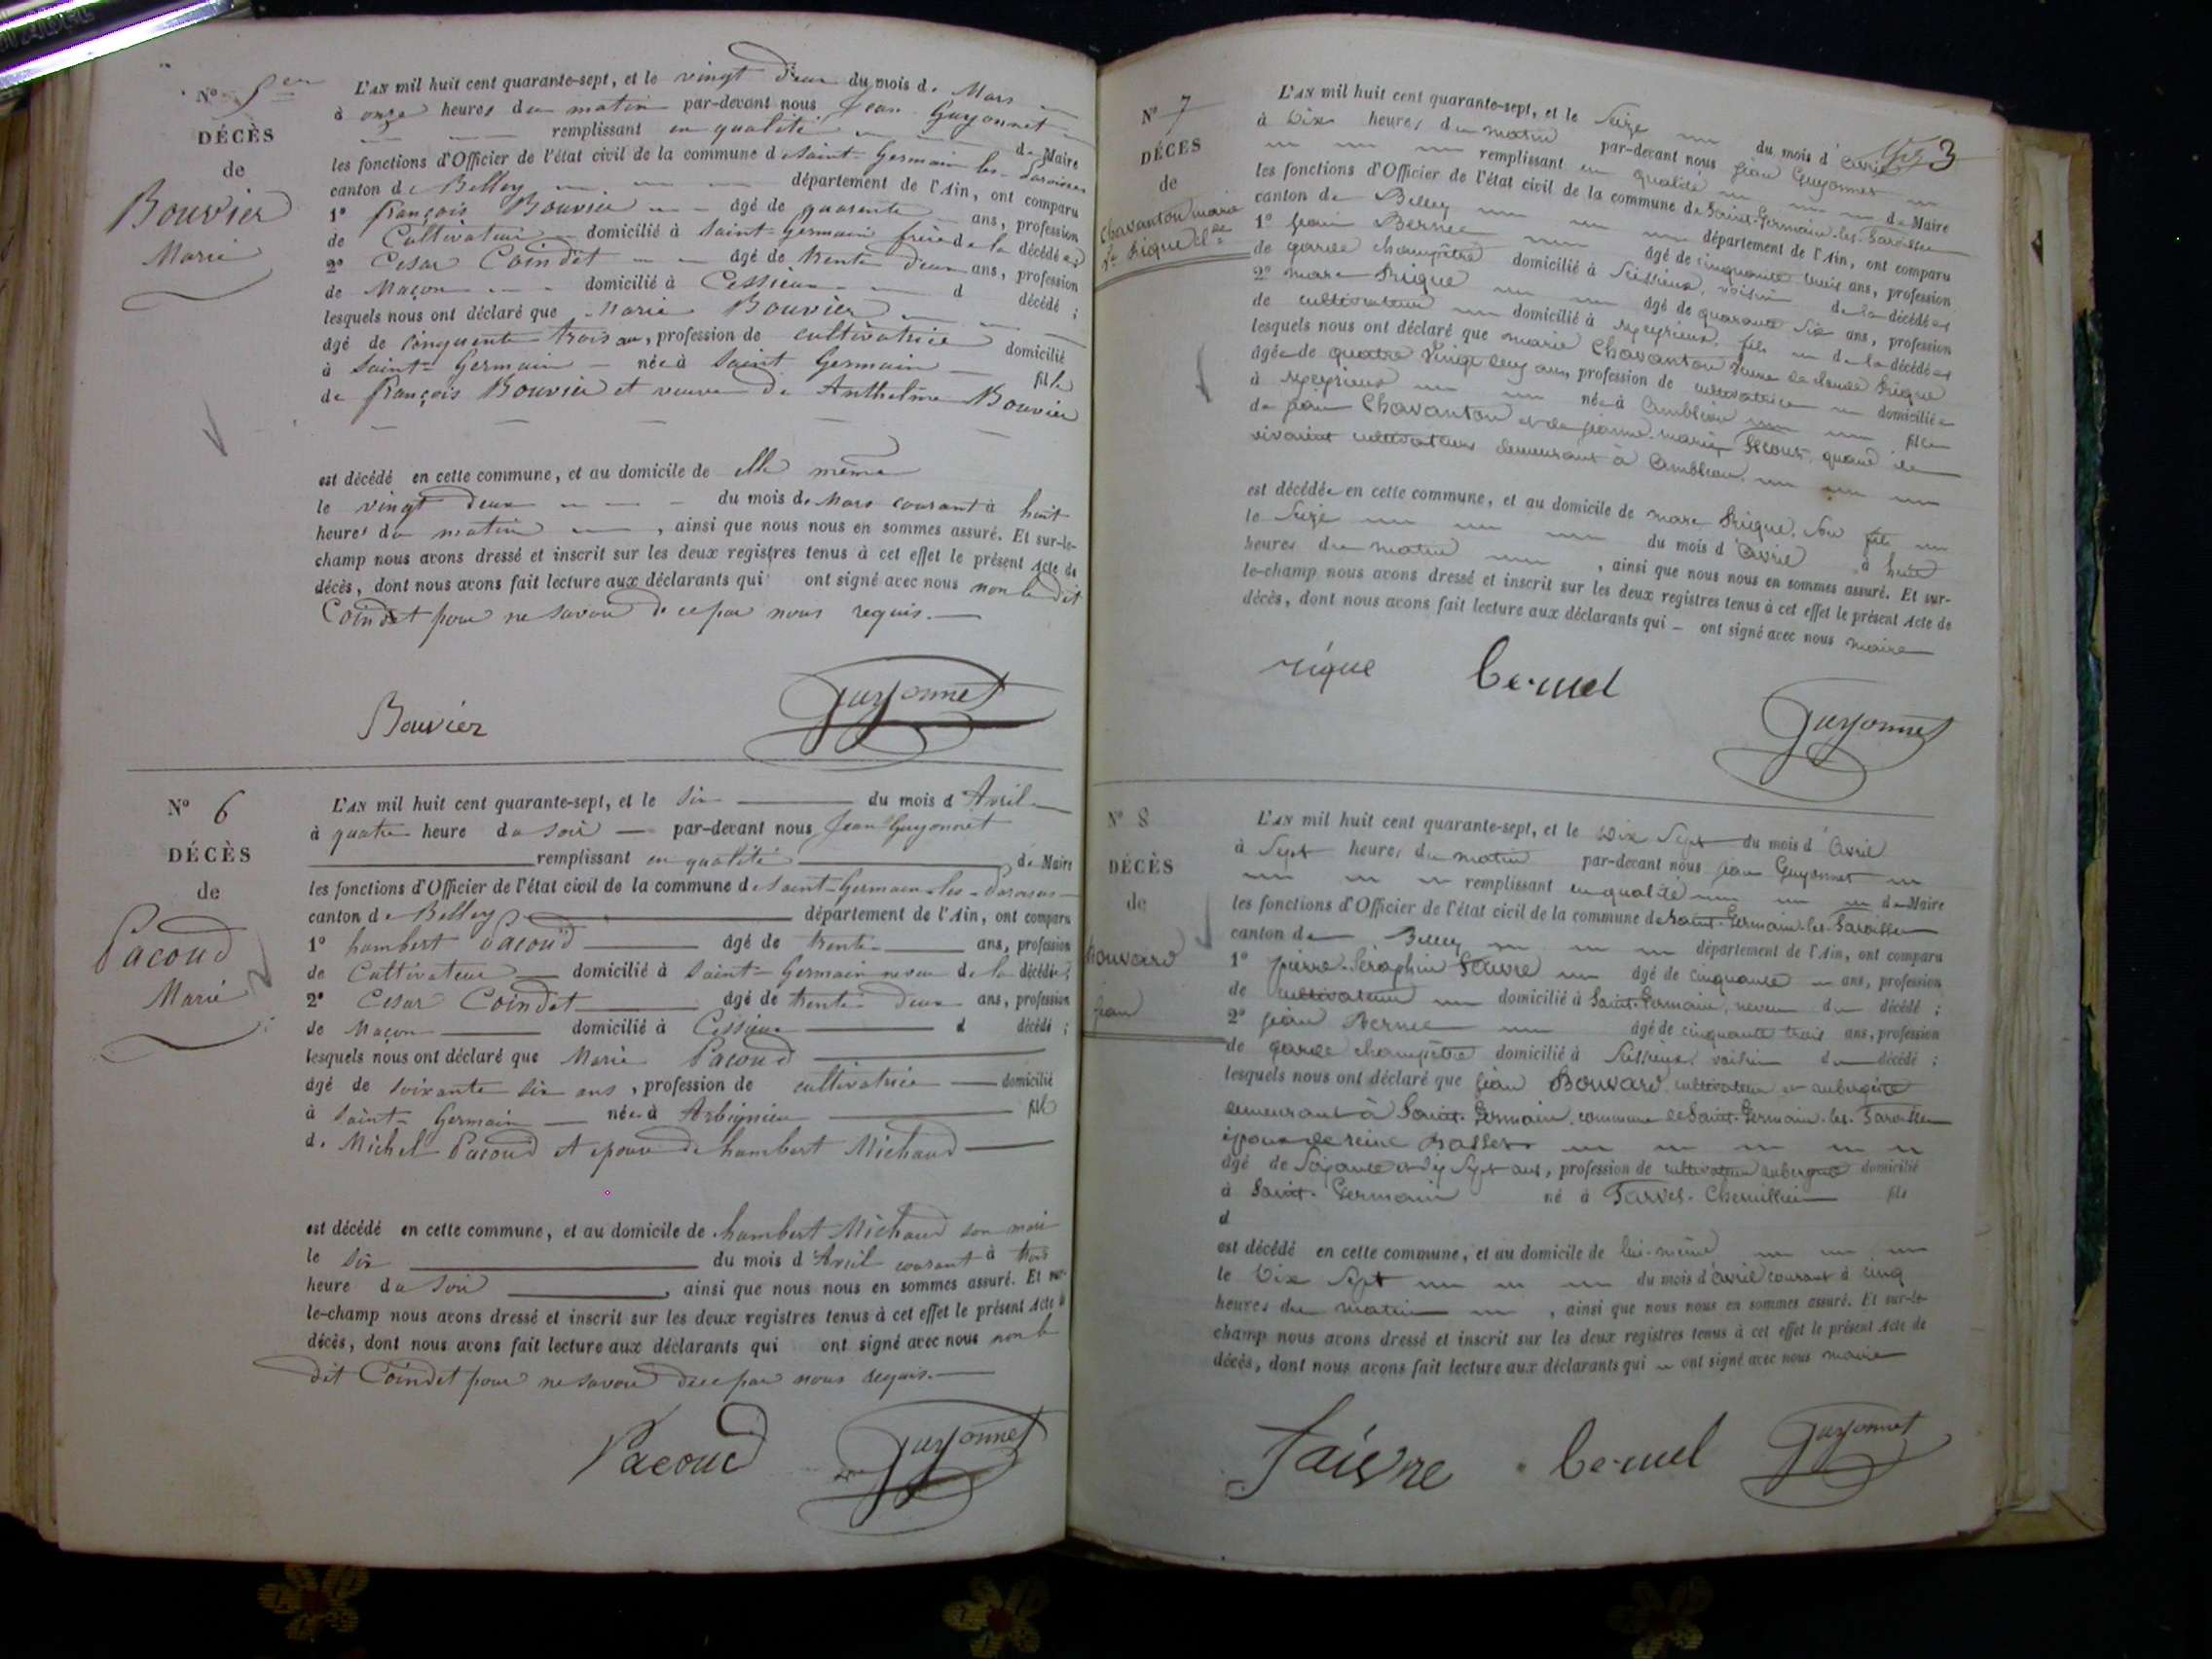 N° 5
DÉCÈS
de
Bouvier
Marie
L'AN mil huit cent quarante-sept, et le vingt deux du mois de Mars
à onze heures du matin par-devant nous Jean Guyonnet
remplissant en qualité de Maire
les fonctions d'Officier de l'état civil de la commune de Saint-Germain les Paroisses
canton de Belley département de l'Ain, ont comparu
1° François Bouvier âgé de quarente ans, profession
de Cultivateur domicilié à Saint-Germain frère de la décédée
2° Cesar Coindet âgé de trente deux ans, profession
de Maçon domicilié à Cessieux d décédé ;
lesquels nous ont déclaré que Marie Bouvier
âgé de cinquente trois ans, profession de cultivatrice domicilié
à Saint-Germain née à Saint Germain fille
de François Bouvier et veuve de Anthelme Bouvier
est décédé en cette commune, et au domicile de elle même
le vingt deux du mois de Mars courant à huit
heures du matin , ainsi que nous nous en sommes assuré. Et sur-le-
champ nous avons dressé et inscrit sur les deux registres tenus à cet effet le présent Acte de
décès, dont nous avons fait lecture aux déclarants qui ont signé avec nous non le dit
Coindet pour ne savoir de ce par nous requis.
Bouvier Guyonnet
N° 6
DÉCÈS
de
Pacoud
Marie
L'AN mil huit cent quarante-sept, et le six du mois d'Avril
à quatre heure du soir par-devant nous Jean Guyonnet
remplissant en qualité de Maire
les fonctions d'Officier de l'état civil de la commune de Saint-Germain-les-Paroisses
canton de Belley département de l'Ain, ont comparu
1° humbert Pacoud âgé de trente ans, profession
de Cultivateur domicilié à Saint-Germain neveu de la décédée ;
2° Cesar Coindet âgé de trente deux ans, profession
de Maçon domicilié à Cessieux d décédé ;
lesquels nous ont déclaré que Marie Pacoud
âgé de soixante six ans, profession de cultivatrice domicilié
à Saint-Germain née à Arbignieu fille
de Michel Pacoud et epouse de humbert Michaud
est décédé en cette commune, et au domicile de humbert Michaud son mari
le six du mois d'Avril courant à trois
heure du soir , ainsi que nous nous en sommes assuré. Et sur-
le-champ nous avons dressé et inscrit sur les deux registres tenus à cet effet le présent Acte de
décès, dont nous avons fait lecture aux déclarants qui ont signé avec nous non le
dit Coindet pour ne savoir de ce par nous requis.
Pacoud Guyonnet
3
N° 7
DÉCÈS
de
Chavanton marie
Ve Rique Cde
L'AN mil huit cent quarante-sept, et le Seize du mois d'avril
à Dix heures du matin par-devant nous jean Guyonnet
remplissant en qualité de Maire
les fonctions d'Officier de l'état civil de la commune de Saint-Germain-les-Paroisses
canton de Belley département de l'Ain, ont comparu
1° jean Bernel âgé de cinquante trois ans, profession
de garde champêtre domicilié à Seissieux, voisin de la décédée
2° marc Rique âgé de quarante six ans, profession
de cultivateur domicilié à Meyrieux, fils de la décédée
lesquels nous ont déclaré que marie Chavanton Veuve de claude Rique
âgée de quatre Vingt deux ans, profession de cultivatrice domiciliée
à Meyrieux née à Ambléon fille
de jean Chavanton et de jeanne-marie quand ils
vivaient cultivateurs demeurant à Ambléon
est décédée en cette commune, et au domicile de marc Rique, son fils
le Seize du mois d'avril à huit
heures du matin , ainsi que nous nous en sommes assuré. Et sur-
le-champ nous avons dressé et inscrit sur les deux registres tenus à cet effet le présent Acte de
décès, dont nous avons fait lecture aux déclarants qui ont signé avec nous maire
rique bernel
Guyonnet
N° 8
DÉCÈS
de
Bouvard
jean
L'AN mil huit cent quarante-sept, et le Dix Sept du mois d'avril
à Sept heures du matin par-devant nous jean Guyonnet
remplissant en qualité de Maire
les fonctions d'Officier de l'état civil de la commune de Saint-Germain-les-Paroisses
canton de Belley département de l'Ain, ont comparu
1° pierre-Séraphin Faivre âgé de cinquante ans, profession
de cultivateur domicilié à Saint-Germain, neveu du décédé ;
2° jean Bernel âgé de cinquante trois ans, profession
de garde champêtre domicilié à Seissieux, voisin du décédé ;
lesquels nous ont déclaré que jean Bouvard cultivateur et aubergiste
demeurant à Saint-Germain, commune de Saint-Germain-les-Paroisses
époux de reine
âgé de Soixante et dix Sept ans, profession de cultivateur aubergiste domicilié
à Saint-Germain né à fils
d
est décédé en cette commune, et au domicile de lui-même
le Dix Sept du mois d'avril courant à cinq
heures du matin , ainsi que nous nous en sommes assuré. Et sur-le-
champ nous avons dressé et inscrit sur les deux registres tenus à cet effet le présent Acte de
décès, dont nous avons fait lecture aux déclarants qui ont signé avec nous maire
faivre bernel Guyonnet